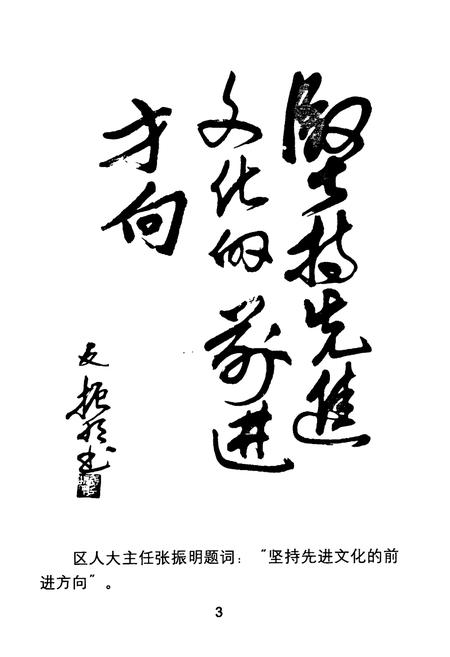 堅持先進
文化的前进
方向
振明书
区人大主任张振明题词：“坚持先进文化的前
进方向”。
3